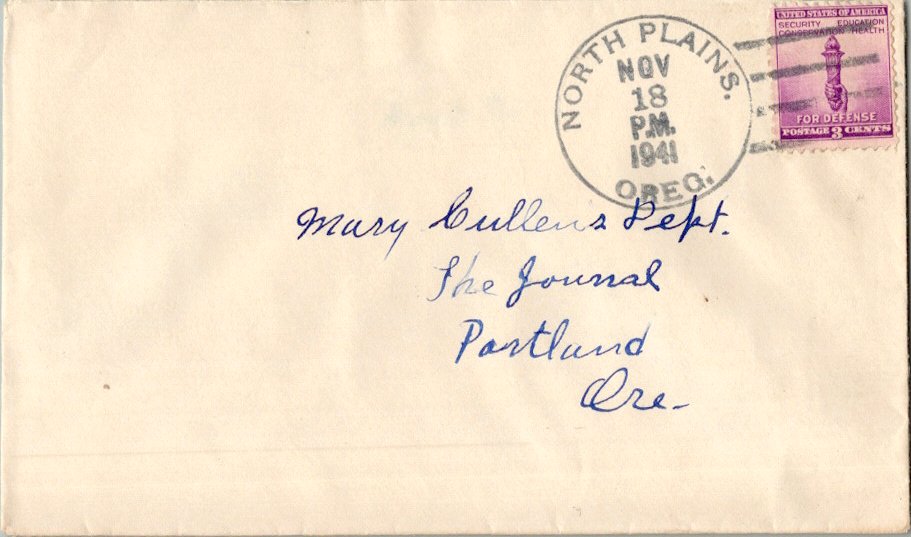 NORTH PLAINS.
NOV
18
P.M.
1941
OREG.
UNITED STATES OF AMERICA
SECURITY EDUCATION
CONSERVATION HEALTH
FOR DEFENSE
POSTAGE 3 CENTS
Mary Cullens Dept.
The Journal
Portland
Ore-